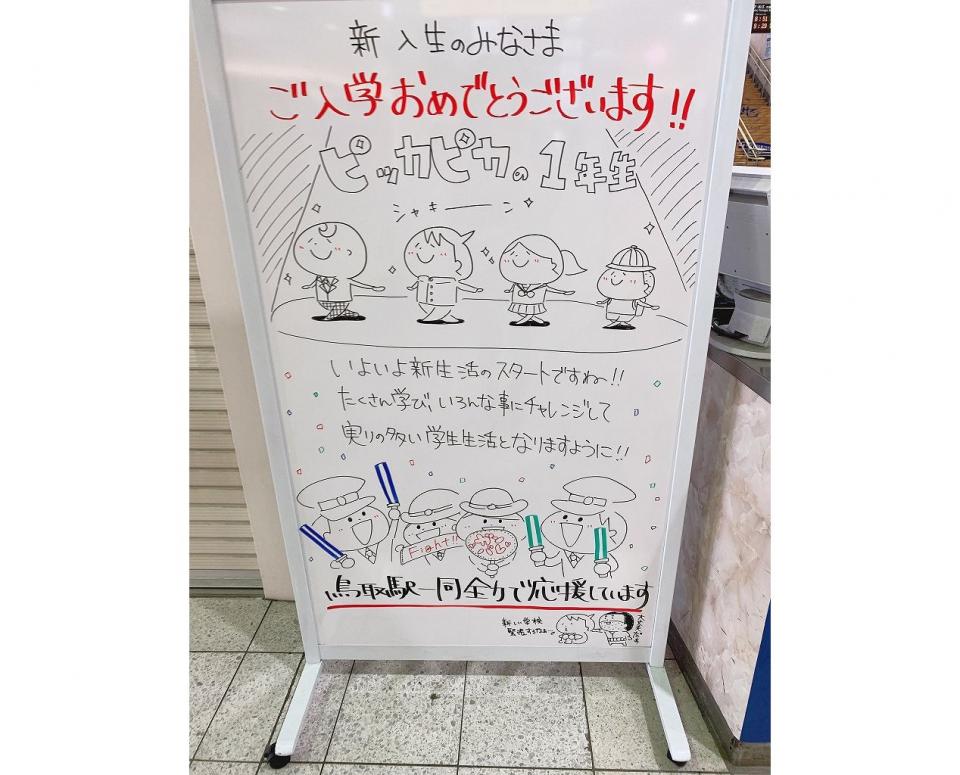 新入生のみなさま
ご入学おめでとうございます!!
ピッカピカの1年生
シャキーーン
いよいよ新生活のスタートですね〜!!
たくさん学び、いろんな事にチャレンジして
実りの多い学生生活となりますように!!
Fight!!
鳥取駅一同全力で応援しています
新しい学校
緊張するなぁ〜
大丈夫だよ
8:51